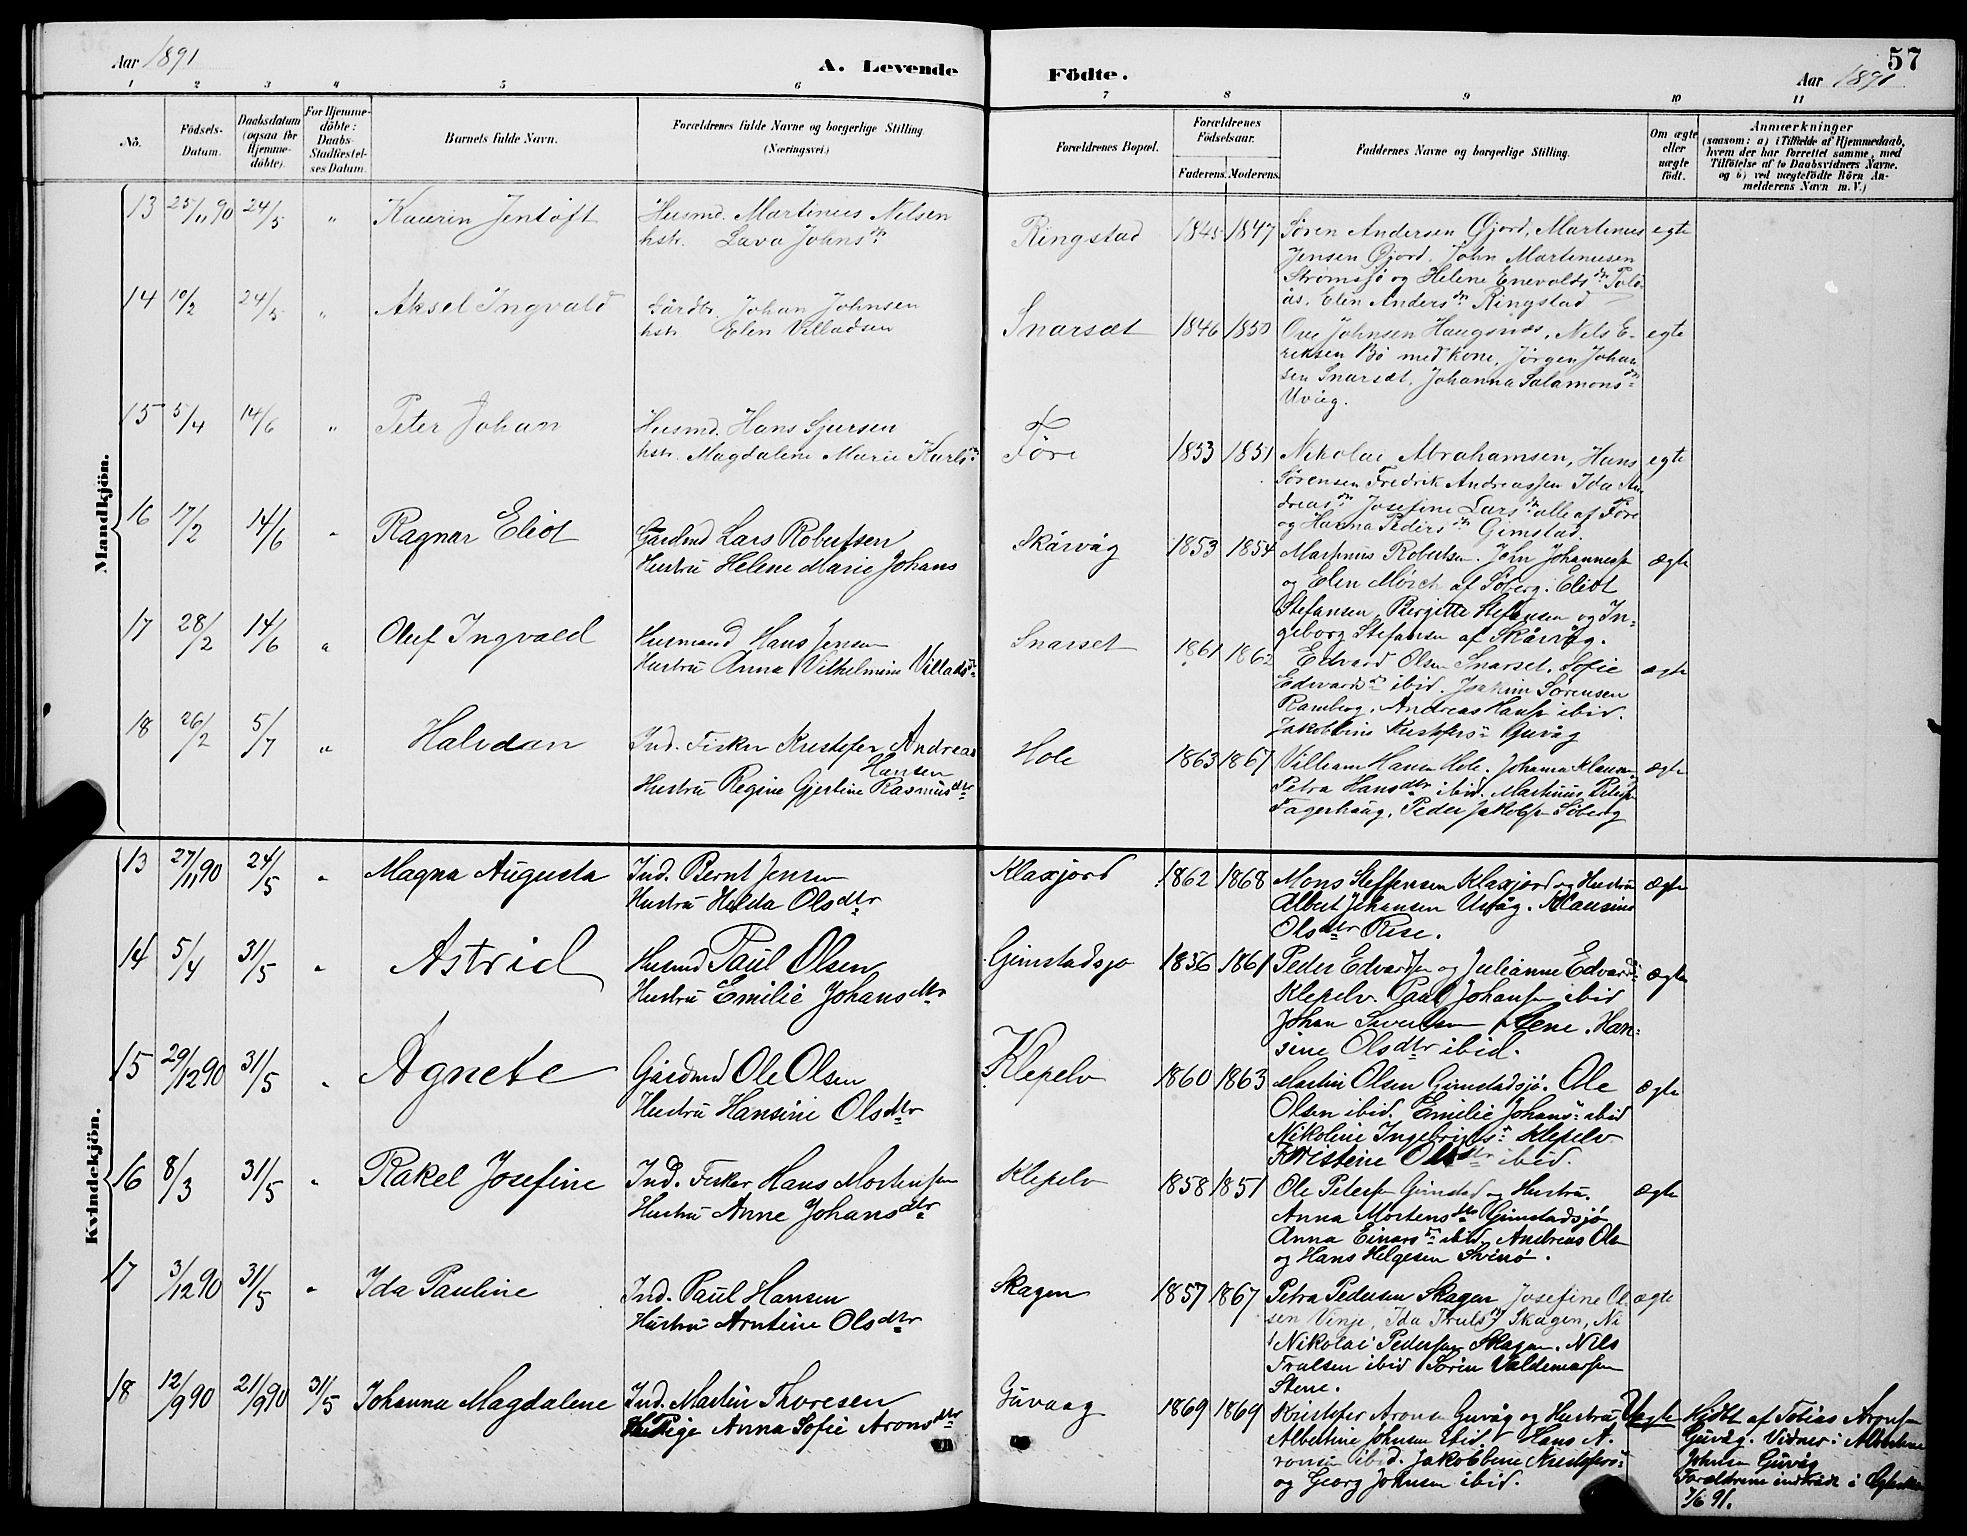 Aar 1891
A. Levende Födte.
57
Aar 1891
1 2 3 4 5 6 7 8 9 10 11
No.
Födsels-Datum.
Daabsdatum (ogsaa for Hjemmedöbte).
For Hjemmedöbte: Daabs-Stadfestelses Datum.
Barnets fulde Navn.
Forældrenes fulde Navne og borgerlige Stilling (Næringsvei.)
Forældrenes Bopæl.
Forældrenes Födselsaar.
Faderens. Moderens.
Faddernes Navne og borgerlige Stilling.
Om ægte eller uægte födt.
Anmærkninger
(saasom: a) i Tilfælde af Hjemmedaab,
hvem der har forrettet samme, med
Tilföielse af to Daabsvidners Navne.
og b) ved uægtefödte Börn An-
melderens Navn m.V.)
Mandkjön.
13 25/11 90 24/5 " Kaurin Jentoft
Husmd. Martinus Nilsen
hstr. Lava Johnsdr.
Ringstad 1845 1847
Søren Andersen Øjord, Martinus
Jensen Øjord. John Martinusen
Strømsjø og Helene Enevoldsdr
Elen Andersdr Ringstad
egte
14 10/2 24/5 " Aksel Ingvald
Gårdbr. Johan Johnsen
hstr Elen Villadsen
Snarsæt 1846 1850
Ove Johnsen Haugsnæs, Nils E-
riksen Bö med kone, Jörgen Johan
sen Snarsæt, Johanna Salamonsdr
Uvåg.
egte
15 5/4 14/6 " Peter Johan
Husmd. Hans Sjursen
hstr. Magdalene Marie Karlsdr
Före 1853 1851
Nikolai Abrahamsen, Hans
Sørensen Fredrik Andreassen Ida An
dreasdr Josefine Larsdr alle af Före
og Hanna Pedersdr Gimstad.
egte
16 17/2 14/6 " Ragnar Eliot
Gårdmd Lars Robertsen
Hustru Helene Marie Johans
Skårvåg 1853 1854
Martinus Robertsen. John Johanness
og Elen Mörch af Söberg. Eliot
Stefansen, Bergitte Stefansen og In-
geborg Stefansen af Skårvåg.
ægte
17 28/2 14/6 " Oluf Ingvald
Husmand Hans Jensen
Hustru Anna Vilhelmine Villadsdr
Snarset 1861 1862
Edvard Olsen Snarset. Sofie
Edvardsdr ibid. Joakim Sörensen
Ramberg. Andreas Hansen ibid.
Jakobbine Kristofersdr Guvåg
ægte
18 26/2 5/7 " Halvdan
Ind. Fisker Kristofer Andreas
Hansen
Hustru Regine Gjertine Rasmusdtr
Hole 1863 1867
Villiam Hansen Hole. Johanna Klausen
Petra Hansdtr ibid. Martinus Peters
Fagerhaug, Peder Jakobsen Söberg
ægte
Kvindekjön.
13 27/11 90 24/5 " Magna Augusta
Ind. Bernt Jensen
Hustru Hilda Olsdtr
Klaxjord 1862 1868
Mons Steffensen Klaxjord og Hustru
Albert Johansen Uvåg. Klausine
Olsdtr Rise.
ægte
14 5/4 31/5 " Astrid
Husmd Paul Olsen
Hustru Emilie Johansdtr
Gimstadsjo 1836 1861
Peder Edvardsen og Julianne Edvards
Klepelv. Paal Johansen ibid
Johan Sivertsen Stene. Han-
sine Olsdtr ibid.
ægte
15 29/12 90 31/5 " Agnete
Gårdmd Ole Olsen
Hustru Hansine Olsdtr
Klepelv 1860 1863
Martin Olsen Gimstadsjö. Ole
Olsen ibid. Emilie Johansdr ibid
Nikoline Ingebrigtsdr Klepelv
Kristine Olsdtr ibid.
ægte
16 8/3 31/5 " Rakel Josefine
Ind. Fisker Hans Mortensen
Hustru Anne Johansdtr
Klepelv 1858 1851
Ole Petersen Gimstad og Hustru.
Anna Mortensdtr Gimstadsjö
Anna Einarsdr ibid. Andreas Ols
og Hans Helgesen Svinö.
ægte
17 3/12 90 31/5 " Ida Pauline
Ind. Paul Hansen
Hustru Arntine Olsdtr
Skagen 1857 1867
Petra Pedersen Skagen Josefine Ol-
sen Vinje, Ida Truls Skagen, Ni
Nikolai Pedersen Skagen. Nils
Trulsen ibid Sörin Valdemarsen
Stene.
ægte
18 12/9 90 21/9 90 31/5 Johanna Magdalene
Ind. Martin Thoresen
Pige Anna Sofie Aronsdtr
Guvaag 1869 1869
Kristofer Aronsen Guvåg og Hustru
Albertine Johnsen ibid. Hans A-
ronsen ibid. Jakobbene Kristofersdr
og Georg Johnsen ibid.
Uægte
Hjdbt af Tobias Aronsen
Guvåg. Vidner: Albertine
Johnsen Guvåg
Forældrene indtrådt i Ægteskab
7/6 91.